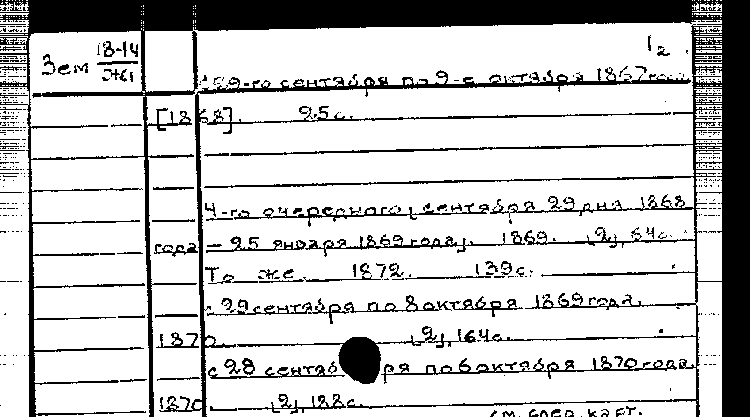 Зем 18-14
Ж1
12
с 29-го сентября по 9-е октября 1867 года
[1868]. 95с.
4-го очередного, сентября 29 дня 1868
года – 25 января 1869 года]. 1869. [2], 64с.
То же. 1872. 139с.
с 29 сентября по 8 октября 1869 года.
1870. [2], 164с.
с 28 сентября по 6 октября 1870 года.
1870. [2], 188с.
см. след. карт.